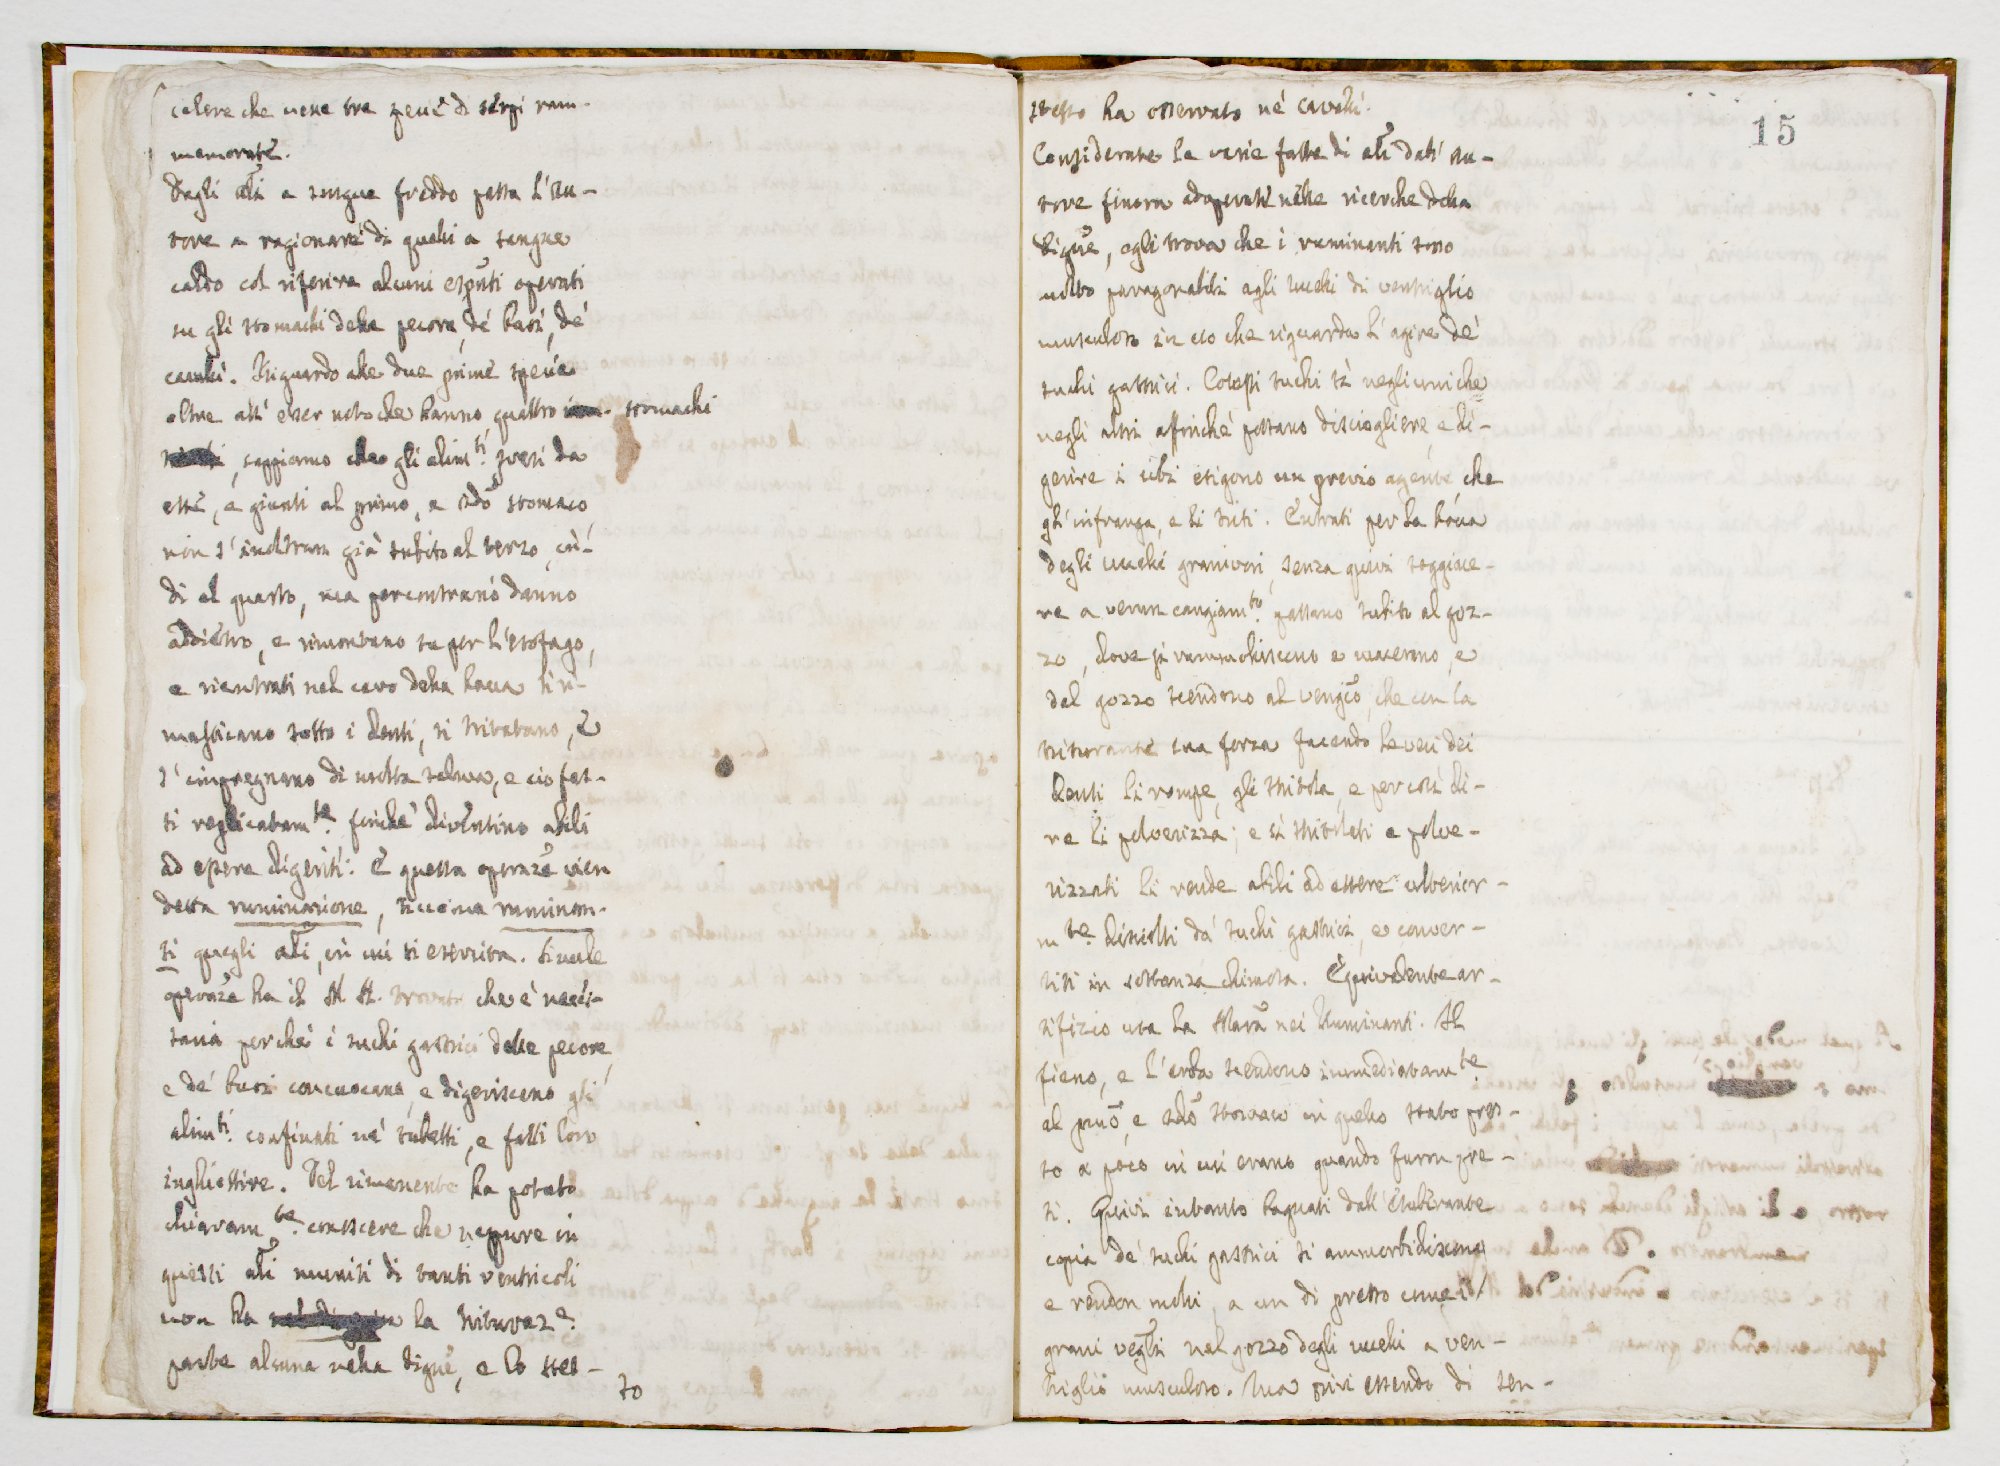 celere che nelle tre specie di serpi ram-
memorate.
Dagli ali a sangue freddo passa l'Au-
tore a ragionare di quelli a sangue
caldo col riferire alcuni esputi operati
su gli stomachi della pecora, de' buoi, de'
cavalli. Riguardo alle due prime specie
oltre all' esser noto che hanno quattro stomachi
, sappiamo che gli alimti. presi da
esse, e giunti al primo, e sdo stomaco
non s'inoltran già subito al terzo, in-
di al quarto, ma per contrario danno
addietro, e rimontano su per l'esofago,
e rientrati nel cavo della bocca si ri-
masticano sotto i denti, si tritutano, e
s'impregnano di molta saliva, e ciò fas-
si replicatamte. finchè diventino abili
ad essere digeriti: E questa operaze vien
detta ruminazione, siccome ruminan-
ti quegli ali, in cui si esercita. Simile
operaze ha il N. A. trovato che è neces-
saria perchè i suchi gastrici delle pecore,
e de' buoi concuocano, e digeriscono gli
alimti. confinati ne' tubetti, e fatti loro
inghiottire. Del rimanente ha potuto
chiaramte. conoscere che neppure in
questi ali muniti di tanti ventricoli
non ha la trituraze.
parte alcuna nella digne, e lo stes-
so
stesso ha osservato ne' cavalli.
15
Considerate le varie fatte di ali dall' Au-
tore finora adoperati nelle ricerche della
digne, egli trova che i ruminanti sono
molto paragonabili agli uccelli di ventriglio
musculoso in ciò che riguarda l'agire de'
suchi gastrici. Cotesti suchi sì negli uni che
negli altri affinchè possano disciogliere, e di-
gerire i cibi esigono un previo agente che
gl' infranga, e li triti. Entrati per la bocca
degli uccelli granivori, senza quivi soggiace-
re a verun cangiamto. passano subito al goz-
zo, dove si rammolliscono e macerano, e
dal gozzo scendono al vengio, che con la
triturante sua forza facendo le veci dei
denti li rompe, gli tritola, e per così di-
re li polverizza; e sì tritolati e polve-
rizzati li rende abili ad essere ulterior-
mte. disciolti da' suchi gastrici, e conver-
titi in sostanza chimosa. Equivalente ar-
tifizio usa la Nara nei Ruminanti. Il
fieno, e l'erba scendono immediatamte.
al prio, e sdo stomaco in quello stato pres-
so a poco in cui erano quando furon pre-
si. Quivi intanto bagnati dall' esuberante
copia de' suchi gastrici si ammorbidiscono
e rendon molli, a un di presso come i
grani vegli nel gozzo degli uccelli a ven-
triglio musculoso. Ma privi essendo di sen-